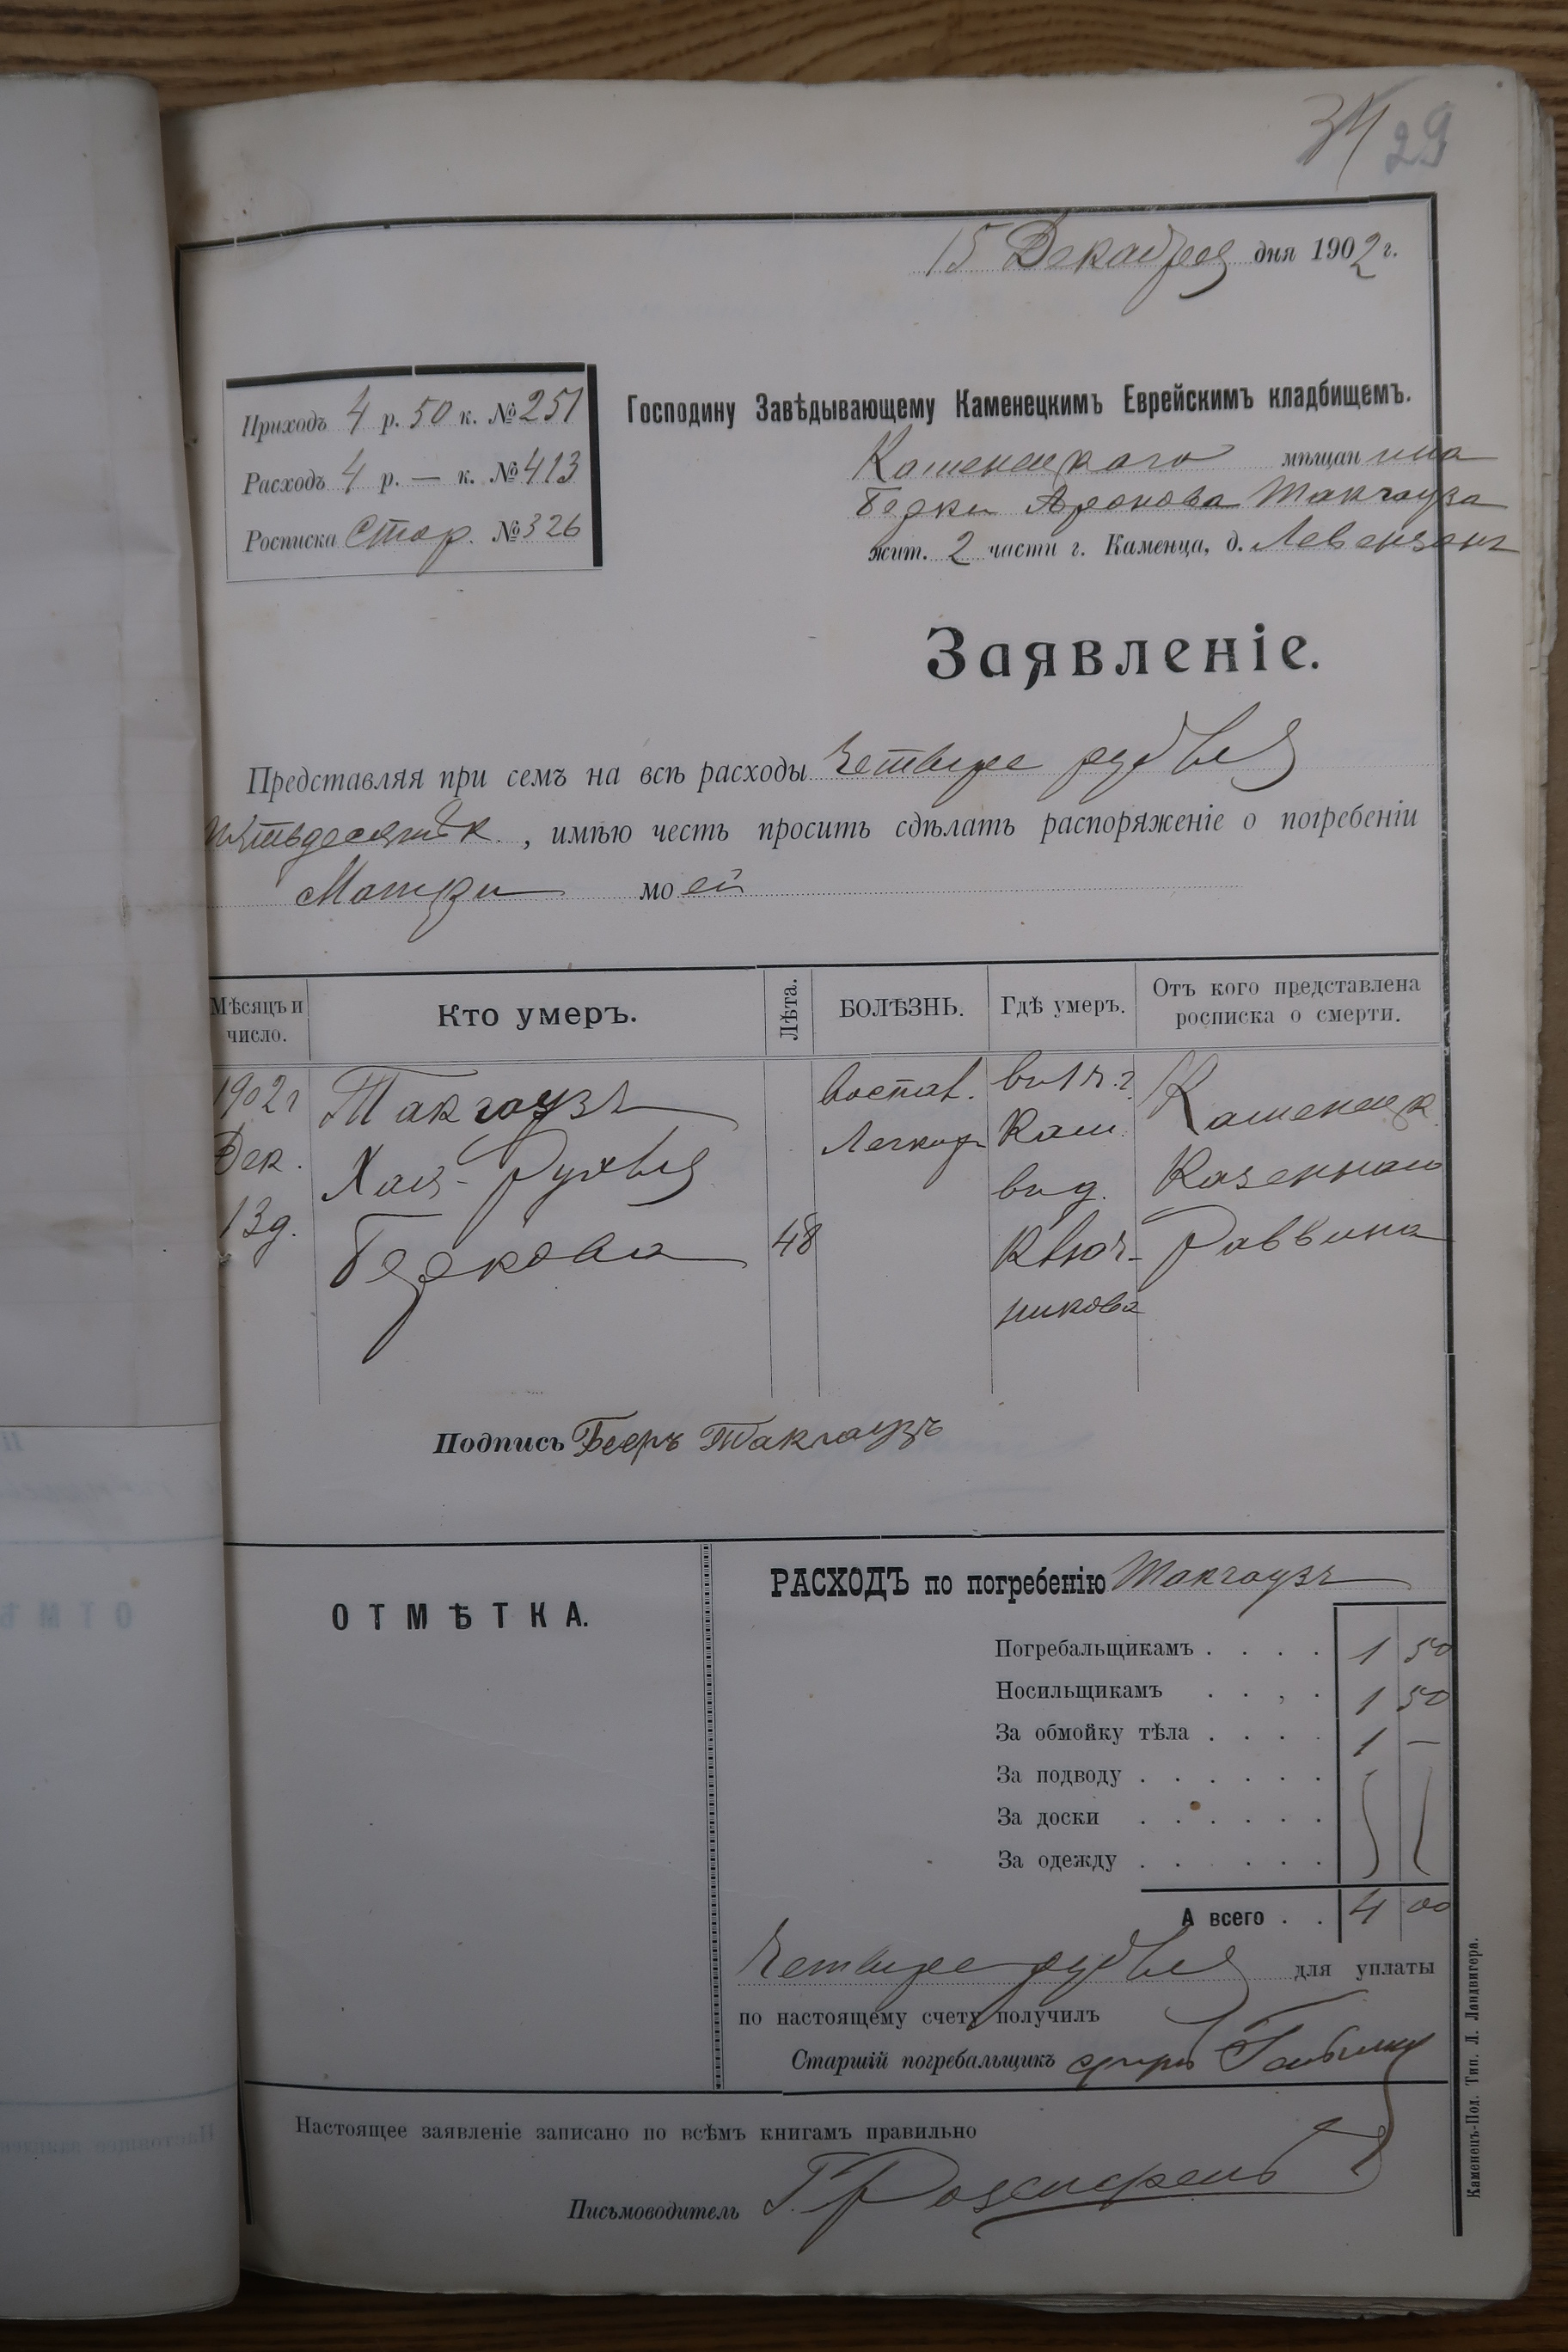 34 29
15 Декабря дня 1902 г.
Приходъ 4 р. 50 к. № 251
Расходъ 4 р. — к. № 413
Росписка Стор. № 326
Господину Завѣдывающему Каменецкимъ Еврейскимъ кладбищемъ.
Каменецкаго мѣщанина
Берки Аронова Такгауза
жит. 2 части г. Каменца, д. Левензонъ
Заявленіе.
Представляя при семъ на всѣ расходы четыре рубля
пятьдесятъ к., имѣю честь просить сдѣлать распоряженіе о погребеніи
Матери моей
Мѣсяцъ и число. Кто умеръ. Лѣта. БОЛѢЗНЬ. Гдѣ умеръ. Отъ кого представлена росписка о смерти.
1902 г Такгаузъ воспал. Каменецк.
Дек. Хая-Рухля Легкихъ Кам. Казеннаго
13 д. Беркова 48 в д. Ключ- Раввина
никова
Подпись Беръ Такгаузъ
ОТМѢТКА.
РАСХОДЪ по погребенію Такгаузъ
Погребальщикамъ . . . . 1 50
Носильщикамъ . . , . 1 50
За обмойку тѣла . . . . 1 —
За подводу . . . . . .
За доски . . . . . .
За одежду . . . . . .
А всего . . 4 00
Четыре рубля для уплаты
по настоящему счету получилъ
Старшій погребальщикъ
Настоящее заявленіе записано по всѣмъ книгамъ правильно
Письмоводитель Г. Розенфельд
Каменецъ-Под. Тип. Л. Ландвигера.